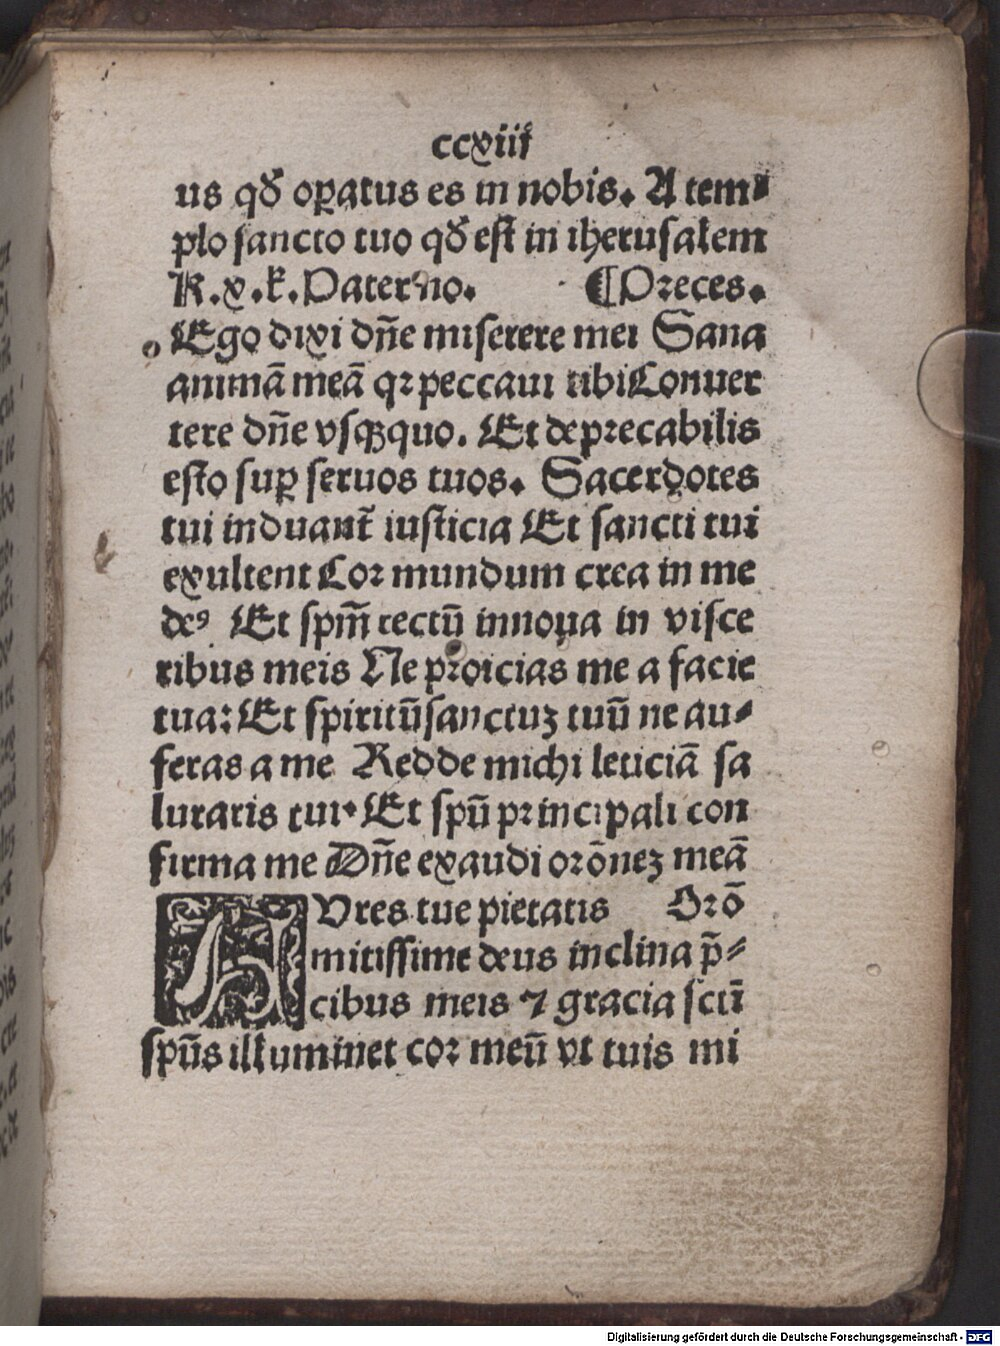 ccxiii
us qď oꝑatus es in nobis. A tem⸗
plo sancto tuo qď est in iherusalem
K.x.k. Pater no. ¶ Preces.
Ego dixi dñe miserere mei Sana
animā meā qꝛ peccaui tibi Conuer
tere dñe vsqꝫquo. Et deprecabilis
esto suꝑ seruos tuos. Sacerdotes
tui induant̃ iusticia Et sancti tui
exultent Cor mundum crea in me
deꝰ Et spm̃ rectū innoua in visce
ribus meis Ne proicias me a facie
tua: Et spiritū sanctuꝫ tuū ne au⸗
feras a me Redde michi leticiā sa
lutaris tui. Et spū principali con
firma me Dñe exaudi orōneꝫ meā
AVres tue pietatis Orō
mitissime deus inclina p̄⸗
cibus meis ⁊ gracia sctī
spūs illuminet cor meū vt tuis mi
Digitalisierung gefördert durch die Deutsche Forschungsgemeinschaft - DFG